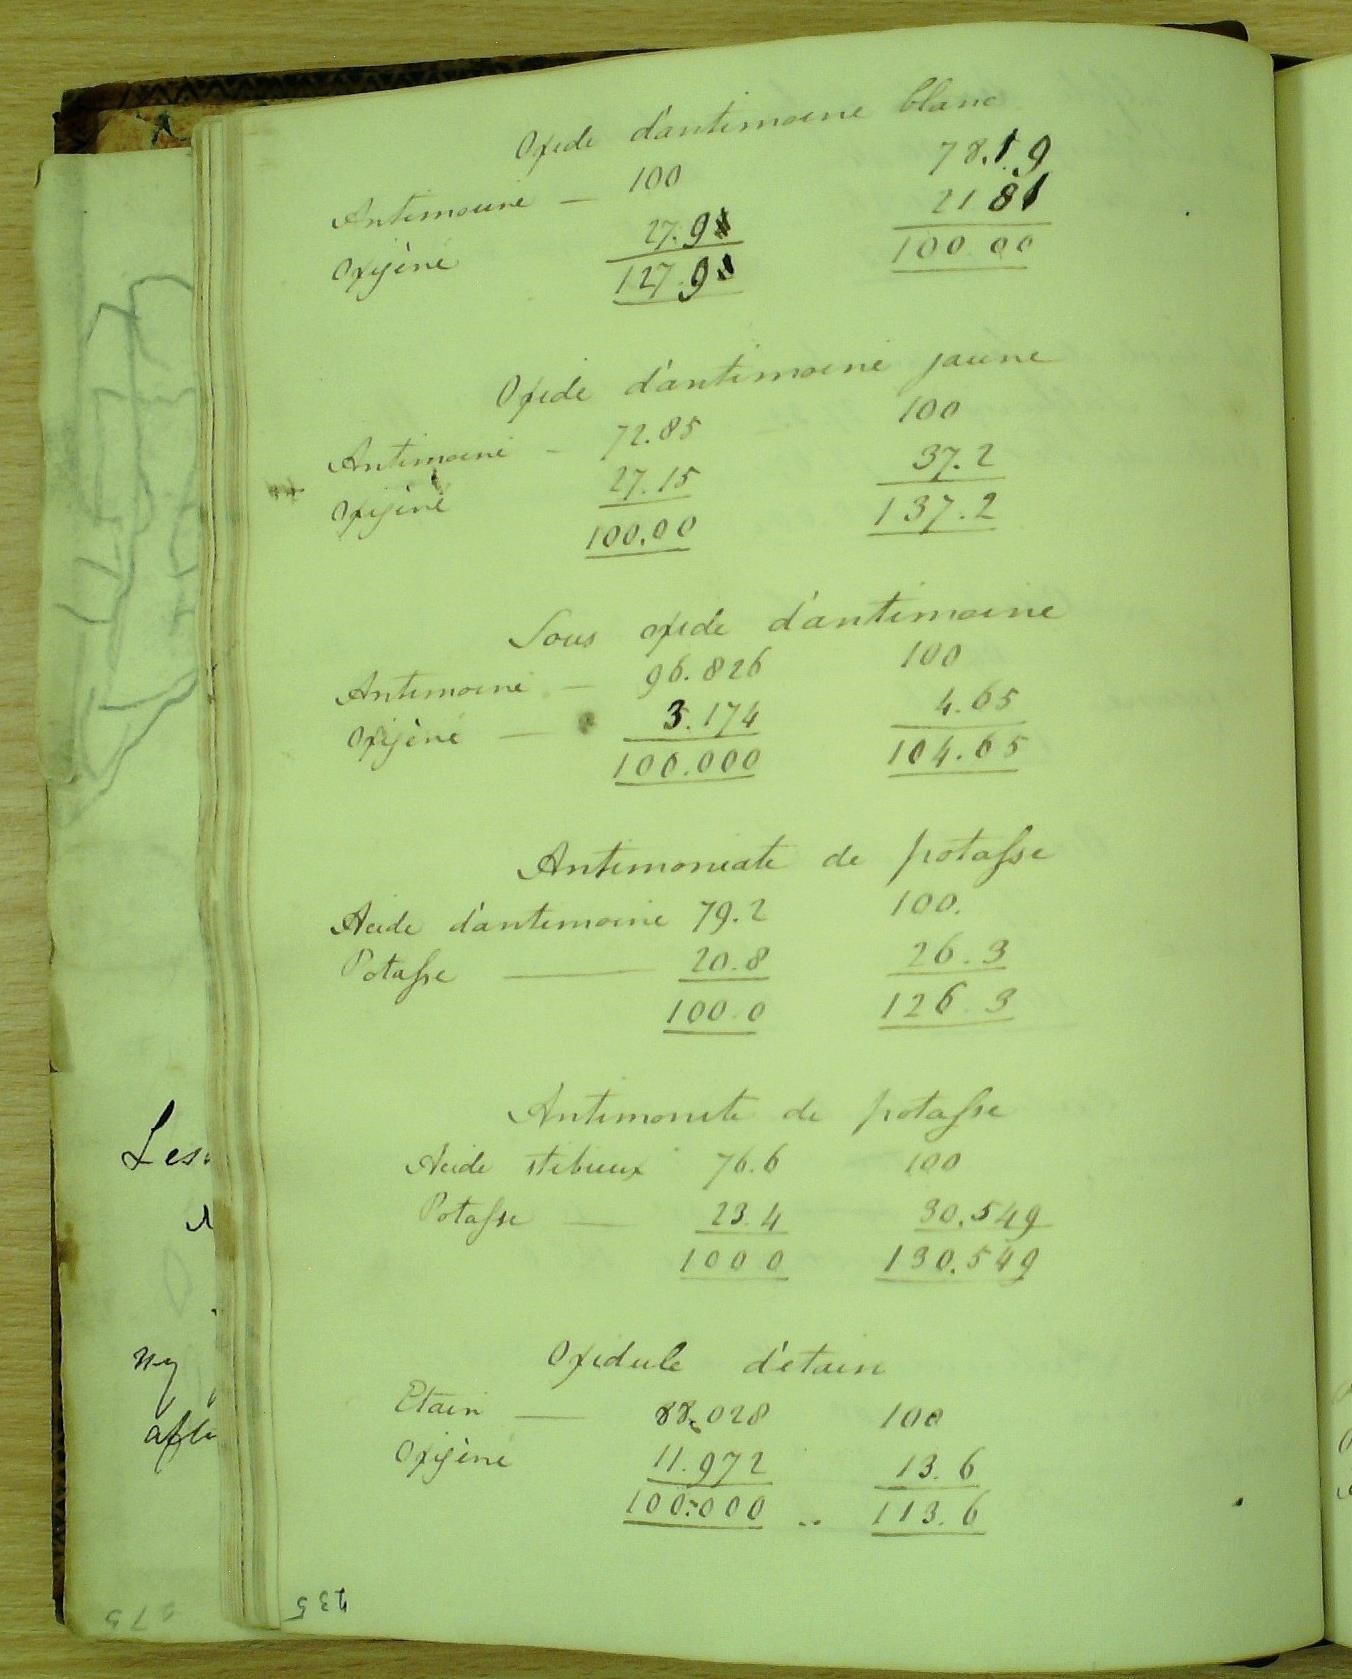 Oxide d'antimoine blanc
Antimoine — 100 78.19
Oxigène 27.9 21 81
127.9 100.00
Oxide d'antimoine jaune
Antimoine - 72.85 100
Oxigène 27.15 37.2
100.00 137.2
Sous oxide d'antimoine
Antimoine — 96.826 100
Oxigène — 3.174 4.65
100.000 104.65
Antimoniate de potasse
Acide d'antimoine 79.2 100.
Potasse — 20.8 26.3
100.0 126.3
Antimonite de potasse
Acide stibieux 76.6 100
Potasse — 23.4 30.549
100 0 130.549
Oxidule d'étain
Etain — 88.028 100
Oxigène 11.972 13.6
100.000 .. 113.6
235
Les
ny
175